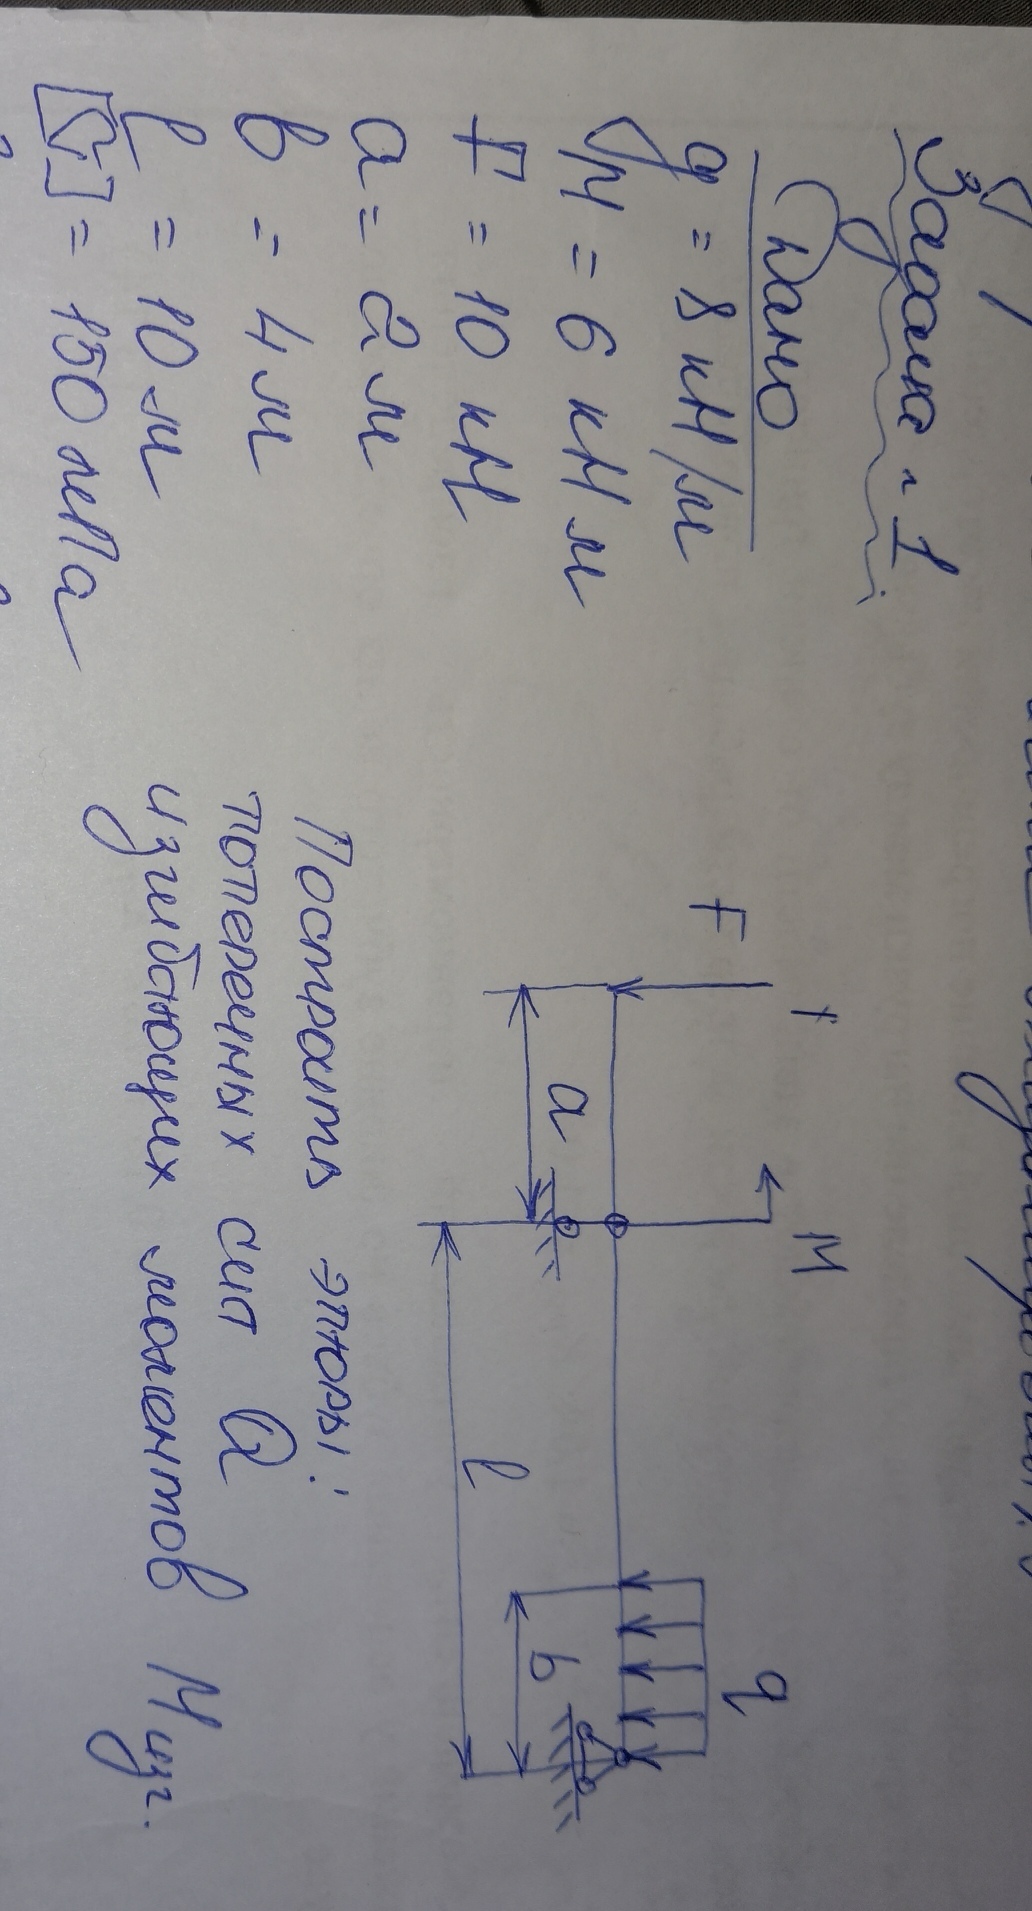 Задача 1
Дано
q = 8 кН/м
M = 6 кН м
F = 10 кН
a = 2 м
b = 4 м
l = 10 м
[σ] = 150 МПа
F
M
q
a
b
l
Построить эпюры:
поперечных сил Q
изгибающих моментов Mизг.